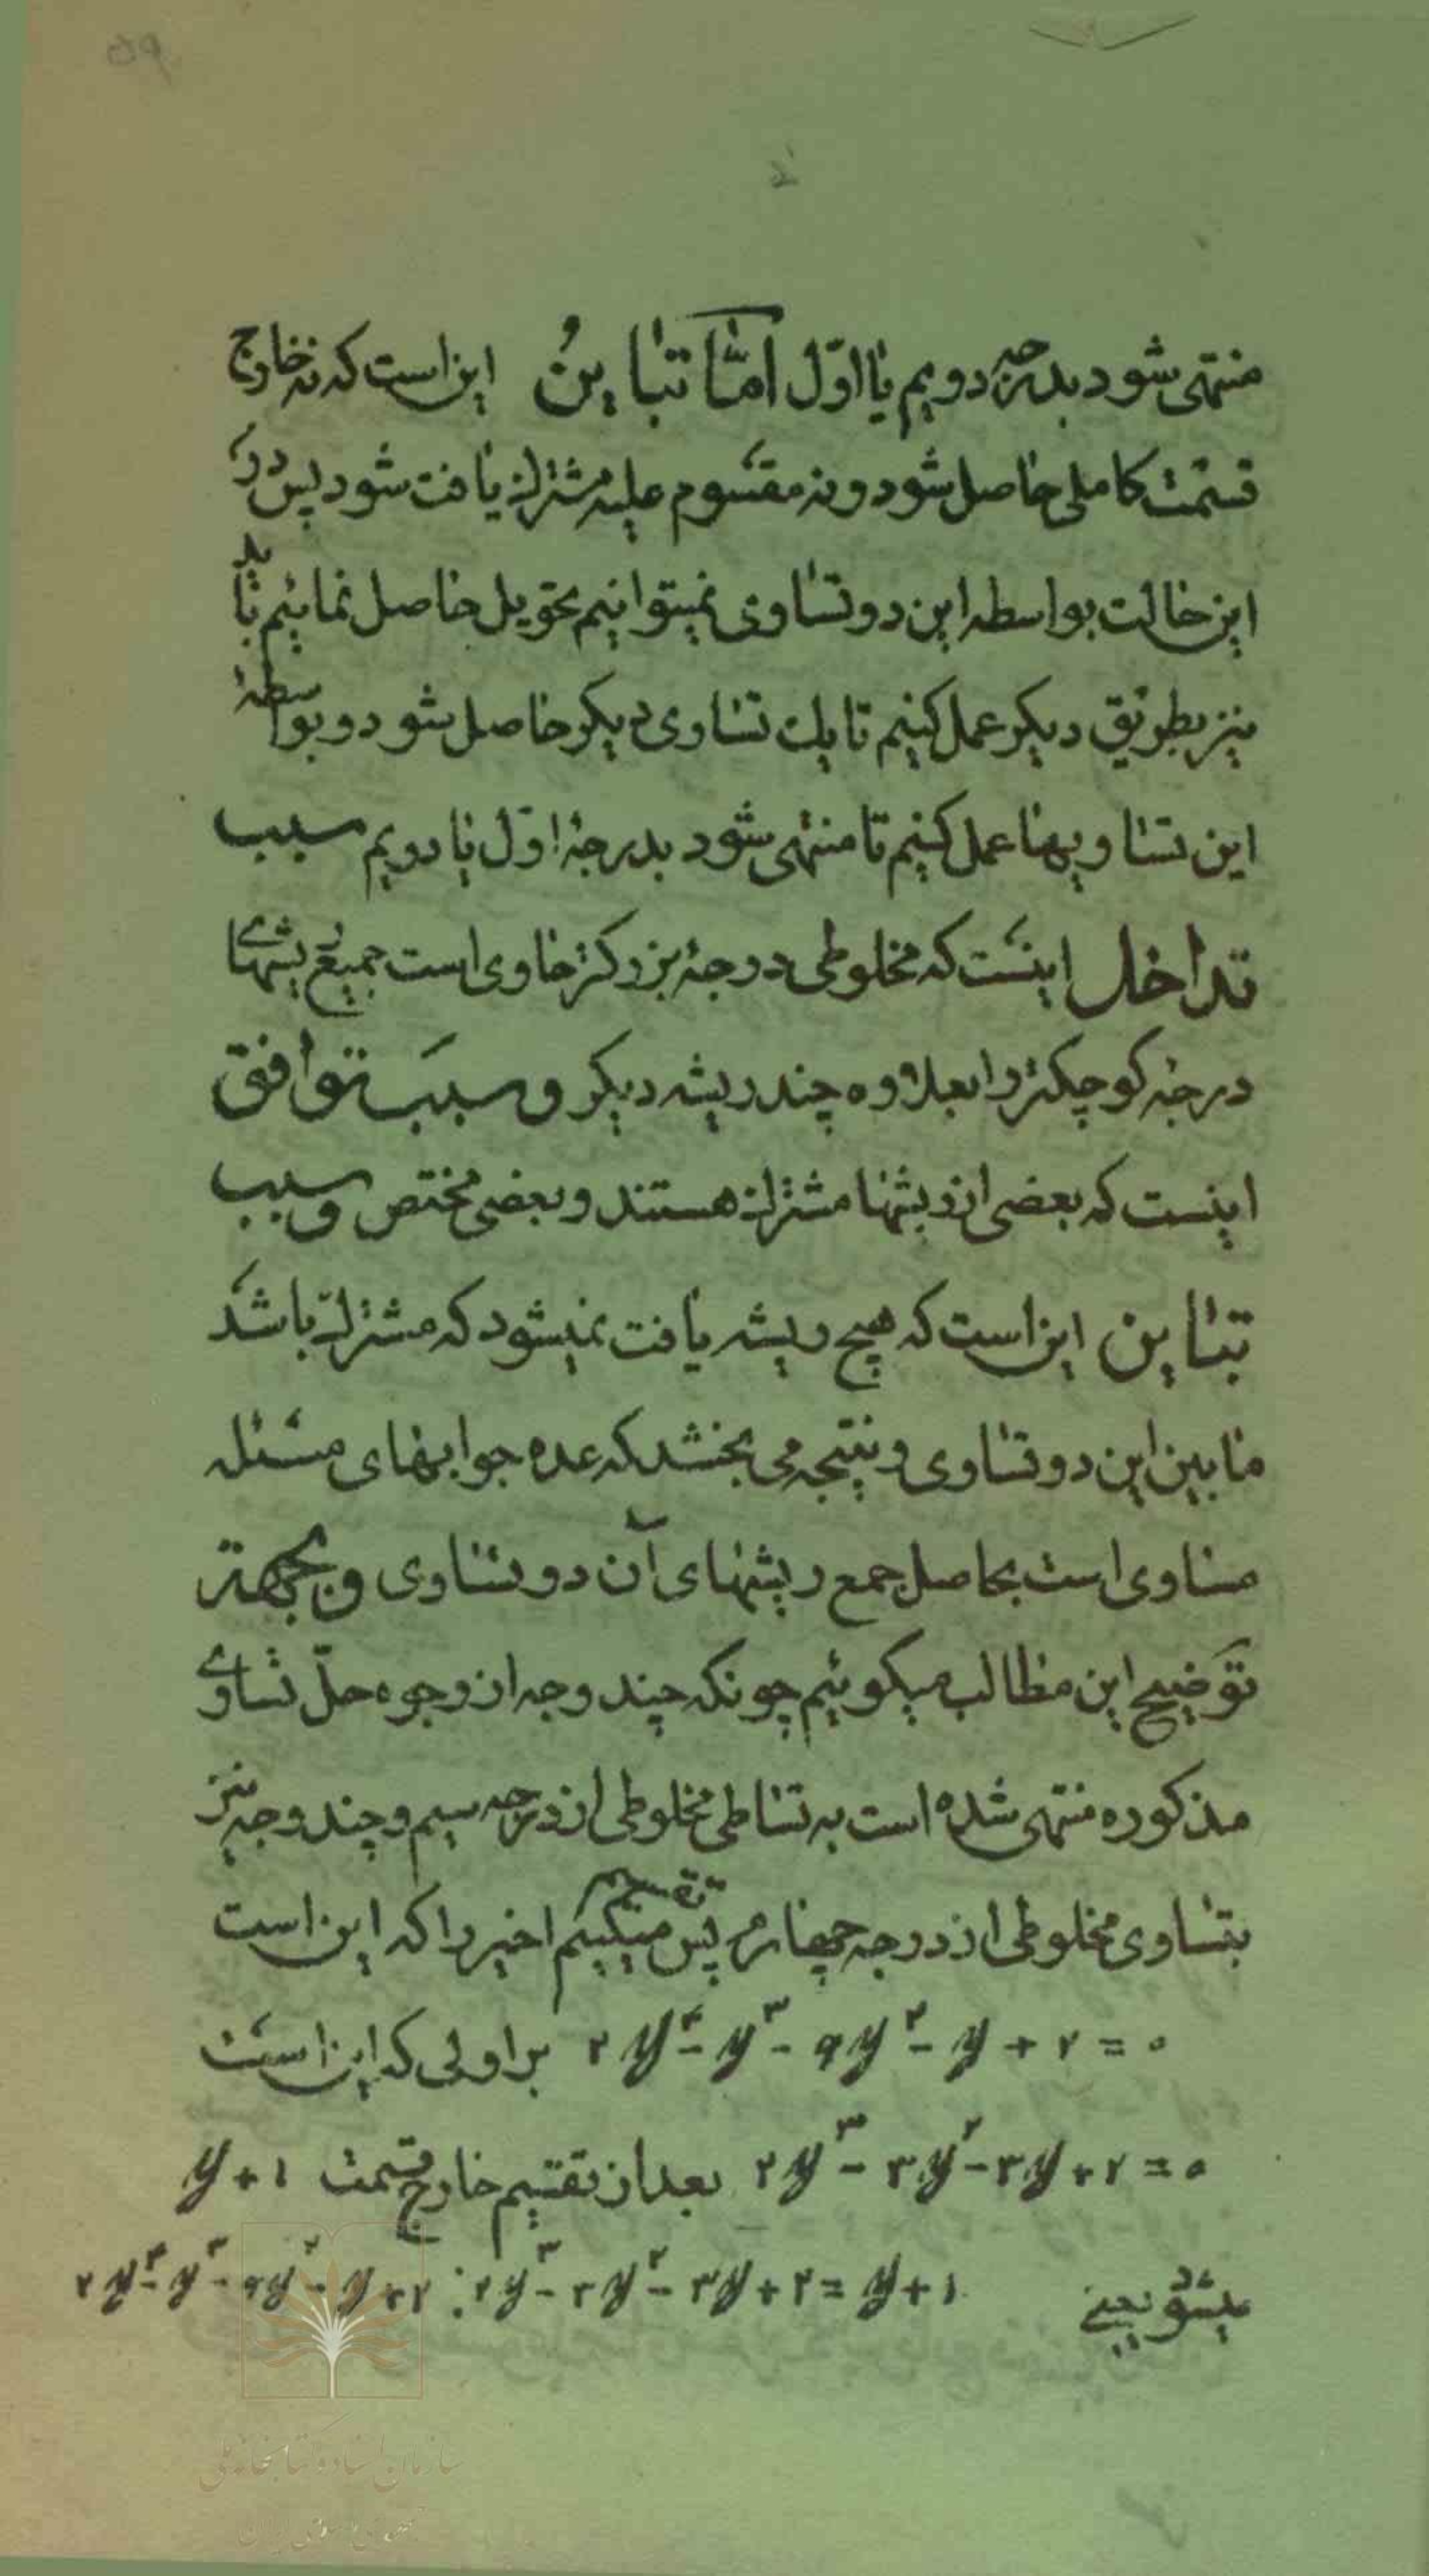 منتهی شود بدرجه دویم یا اوّل امّا تباینُ این است که نه خارج
قسمت کاملی حاصل شود و نه مقسوم علیه مشترک یافت شود پس در
این حالت بواسطه این دو تساوی نمیتوانیم تحویل حاصل نمائیم باید
نیز بطریق دیکر عمل کنیم تا یک تساوی دیکر حاصل شود و بواسطهٔ
این تساویها عمل کنیم تا منتهی شود بدرجهٔ اوّل یا دویم سبب
تداخل اینست که مخلوطی درجهٔ بزرکتر حاوی است جمیع ریشهای
درجه کوچکتر را بعلاوه چند ریشه دیکر و سبب توافق
اینست که بعضی از ریشها مشترک هستند و بعضی مختص و سبب
تباین این است که هیچ ریشه یافت نمیشود که مشترک باشد
مابین این دو تساوی و نتیجه می بخشد که عده جوابهای مسئله
مساوی است بحاصل جمع ریشهای آن دو تساوی و بجهة
توضیح این مطالب میکوئیم چونکه چند وجه از وجوه حلّ تساوی
مذکوره منتهی شده است به تساطی مخلوطی از درجه سیم و چند وجه نیز
بتساوی مخلوطی از درجه چهارم پس تقسیم میکنیم اخیر را که این است
۲y⁴ - y³ - ۹y² - y + ۲ = ۰ بر اولی که این است
۲y³ - ۳y² - ۳y + ۲ = ۰ بعد از تقسیم خارج قسمت y + ۱
میشود یعنی ۲y⁴ - y³ - ۹y² - y + ۲ : ۲y³ - ۳y² - ۳y + ۲ = y + ۱
سازمان اسناد و کتابخانه ملی
جمهوری اسلامی ایران